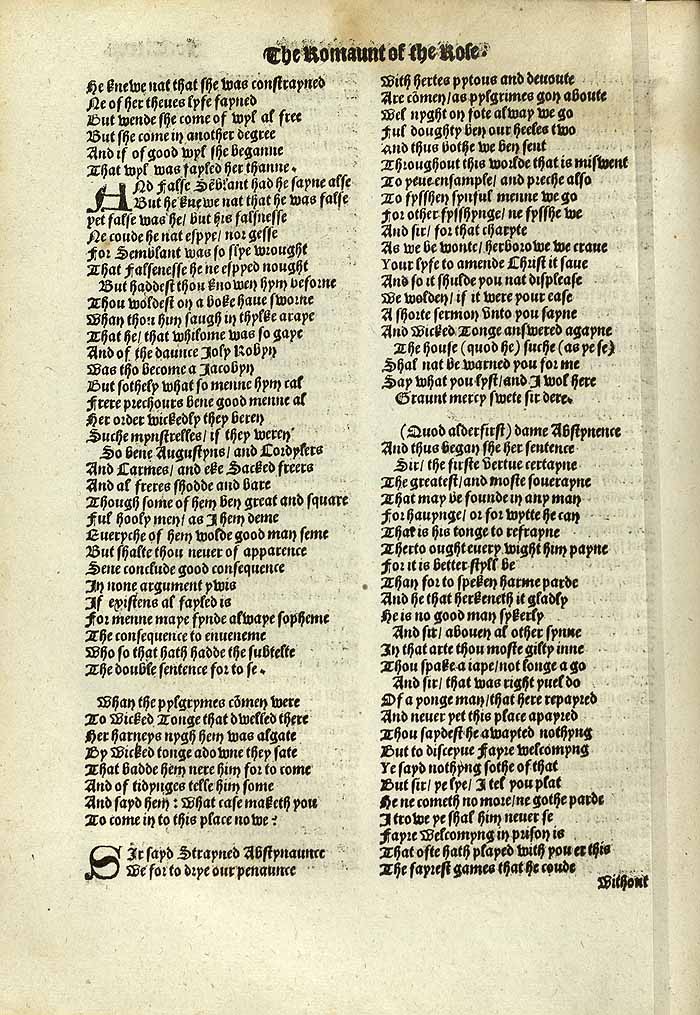 The Romaunt of the Rose.
He knewe nat that she was constrayned
Ne of her theues lyfe fayned
But wende she come of wyl al free
But she come in another degree
And if of good wyl she beganne
That wyl was fayled her thanne.
ANd False Sēblant had he sayne alse
But he knewe nat that he was false
yet false was he/ but his falsnesse
Ne coude he nat espye/ nor gesse
For Semblant was so slye wrought
That Falsenesse he ne espyed nought
But haddest thou knowen hym beforne
Thou woldest on a boke haue sworne
Whan thou him saugh in thylke araye
That he/ that whilome was so gaye
And of the daunce Joly Robyn
Was tho become a Jacobyn
But sothely what so menne hym cal
Frere prechours bene good menne al
Her order wickedly they beren
Suche mynstrelles/ if they weren
So bene Augustyns/ and Cordylers
And Carmes/ and eke Sacked freers
And al freres shodde and bare
Though some of hem ben great and square
Ful hooly men/ as I hem deme
Eueryche of hem wolde good man seme
But shalte thou neuer of apparence
Sene conclude good consequence
In none argument ywis
If existens al fayled is
For menne maye fynde alwaye sopheme
The consequence to enueneme
Who so that hath hadde the subtelte
The double sentence for to se.
Whan the pylgrymes cōmen were
To Wicked Tonge that dwelled there
Her harneys nygh hem was algate
By Wicked tonge adowne they sate
That badde hem nere him for to come
And of tidynges telle him some
And sayd hem: What case maketh you
To come in to this place nowe?
SIr sayd Strayned Abstynaunce
We for to drye our penaunce
With hertes pytous and deuoute
Are cōmen/ as pylgrimes gon aboute
Wel nyght on fote alway we go
Ful doughty ben our heeles two
And thus bothe we ben sent
Throughout this worlde that is miswent
To yeue ensample/ and preche also
To fysshen synful menne we go
For other fysshynge/ ne fysshe we
And sir/ for that charyte
As we be wonte/ herborowe we craue
Your lyfe to amende Christ it saue
And so it shulde you nat displease
We wolden/ if it were your ease
A shorte sermon vnto you sayne
And Wicked Tonge answered agayne
The house (quod he) suche (as ye se)
Shal nat be warned you for me
Say what you lyst/ and I wol here
Graunt mercy swete sir dere.
(Quod alderfirst) dame Abstynence
And thus began she her sentence
Sir/ the firste vertue certayne
The greatest/ and moste souerayne
That may be founde in any man
For hauynge/ or for wytte he can
That is his tonge to refrayne
Therto ought euery wight him payne
For it is better styll be
Than for to speken harme parde
And he that herkeneth it gladly
He is no good man sykerly
And sir/ abouen al other synne
In that arte thou moste gilty inne
Thou spake a iape/ not longe a go
And sir/ that was right yuel do
Of a yonge man/ that here repayred
And neuer yet this place apayred
Thou saydest he awayted nothyng
But to disceyue Fayre welcomyng
Ye sayd nothyng sothe of that
But sir/ ye lye/ I tel you plat
He ne cometh no more/ ne gothe parde
I trowe ye shal him neuer se
Fayre Welcomyng in prison is
That ofte hath played with you er this
The fayrest games that he coude
Without